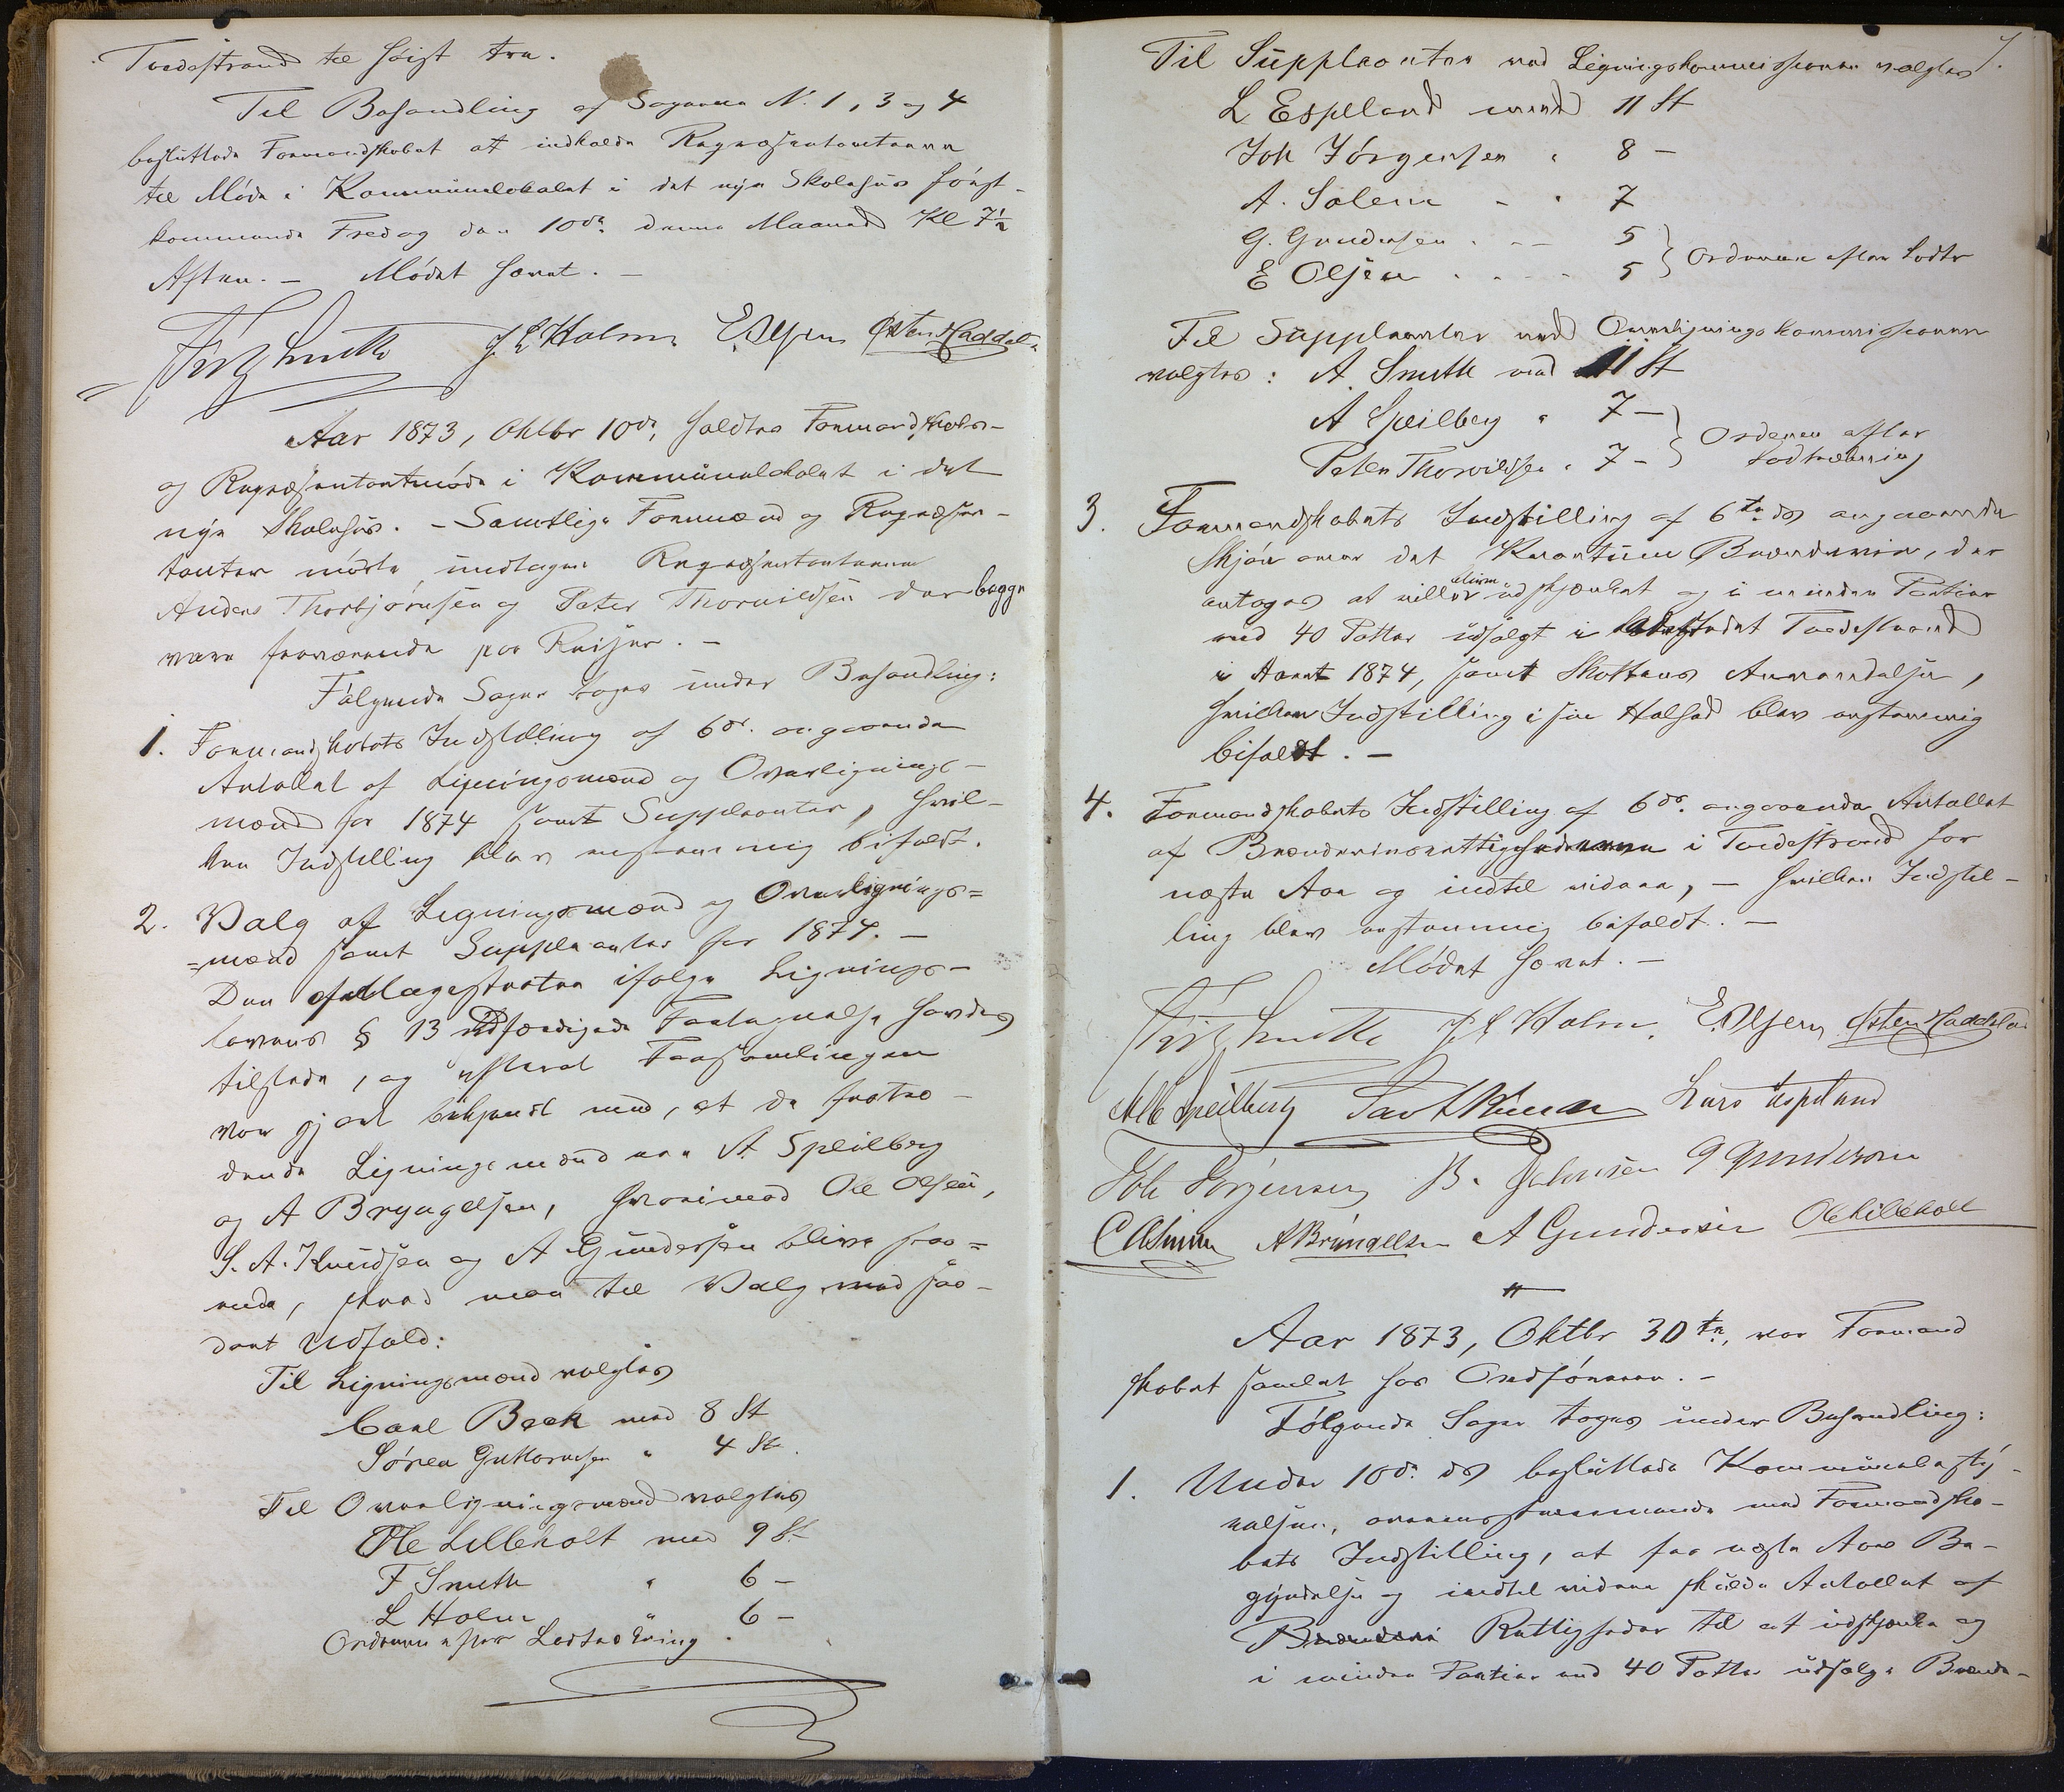 Tvedestrand til høist tre.
Til Behandling af Sagerne N. 1, 3 og 4
besluttede Formandskabet at indkalde Repræsentanterne
til Møde i Kommunelokalet i det nye Skolehus først-
kommende Fredag den 10de denne Maaned Kl 7½
Aften. – Mødet hævet. –
Fritz Smith J L Holm E. Olsen Østen Haddeland
Aar 1873, Oktbr 10de, holdtes Formandskabs-
og Repræsentantmøde i Kommunelokalet i det
nye Skolehus. – Samtlige Formænd og Repræsen-
tanter mødte, undtagen Repræsentanterne
Anders Thorbjørnsen og Peter Thorvildsen der begge
vare fraværende paa Reiser. –
Følgende Sager toges under Behandling:
1. Formandskabets Indstilling af 6ds. angaaende
Antallet af Ligningsmænd og Overlignings-
mænd for 1874 samt Suppleanter, hvil-
ken Indstilling blev enstemmig bifaldt.
2. Valg af Ligningsmænd og Overlignings=
=mænd samt Suppleanter for 1874. –
Den af Magistraten ifølge Lignings-
lovens § 13 udfærdigede Fortegnelse havdes
tilstede, og efterat Forsamlingen
var gjort bekjendt med, at de fratræ-
dende Ligningsmænd ere A. Speilberg
og A Bryngelsen, hvorimod Ole Olsen,
S. A. Knudsen og A Gundersen blive staa=
ende, skred man til Valg med saa-
dant Udfald:
Til Ligningsmænd valgtes
Carl Beck med 8 St
Søren Guttormsen " 4 St.
Til Overligningsmænd valgtes
Ole Lilleholt med 9 St.
F Smith " 6 –
L Holm " 6 –
Ordenen efter Lodtrækning.
7.
Til Suppleanter ved Ligningskommissionen valgtes
L Espeland med 11 St
Joh Jörgensen " 8 –
A. Salem – " 7
G. Gundersen " – 5
E Olsen 5 } Ordenen efter Lodtr
Til Suppleanter ved Overligningskommissionen
valgtes: A. Smith med 11 St
A Speilberg " 7 –
Peter Thorvildsen " 7 – } Ordenen efter
Lodtrækning
3. Formandskabets Indstilling af 6te ds angaaende
Skjøn over det Kvantum Brændevin, der
antoges at ville blive udskjænket og i mindre Partier
end 40 Potter udsolgt i Ladestedet Tvedestrand
i Aaret 1874, samt Skattens Anvendelse,
hvilken Indstilling i sin Helhed blev enstemmig
bifaldt. –
4. Formandskabets Indstilling af 6ds. angaaende Antallet
af Brændevinsrettighederne i Tvedestrand for
næste Aar og indtil videre, – hvilken Indstil-
ling blev enstemmig bifaldt. –
Mødet hævet. –
Fritz Smith J L Holm. E. Olsen Østen Haddeland
Alb Speilberg Lars Espeland
Joh Jörgensen B. G Gundersen
A Bryngelsen A Gundersen Ole Lilleholt
Aar 1873, Oktbr 30te, var Formand
skabet samlet hos Ordføreren. –
Følgende Sager toges under Behandling:
1. Under 10de ds besluttede Kommunebesty-
relsen, overensstemmende med Formandska-
bets Indstilling, at fra næste Aars Be-
gyndelse og indtil videre skulde Antallet af
Rettigheder til at udskjænke og
i mindre Partier end 40 Potter udsælge Brænde-